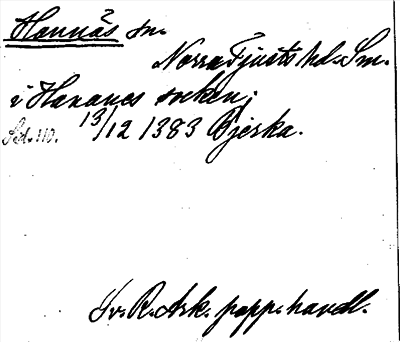 Hannäs sn.
Norra Tjusts hd. Sm.
i Hananes socken;
Sd. 110. 13/12 1383 Bjerka.
Sv. R. Ark. papp. handl.